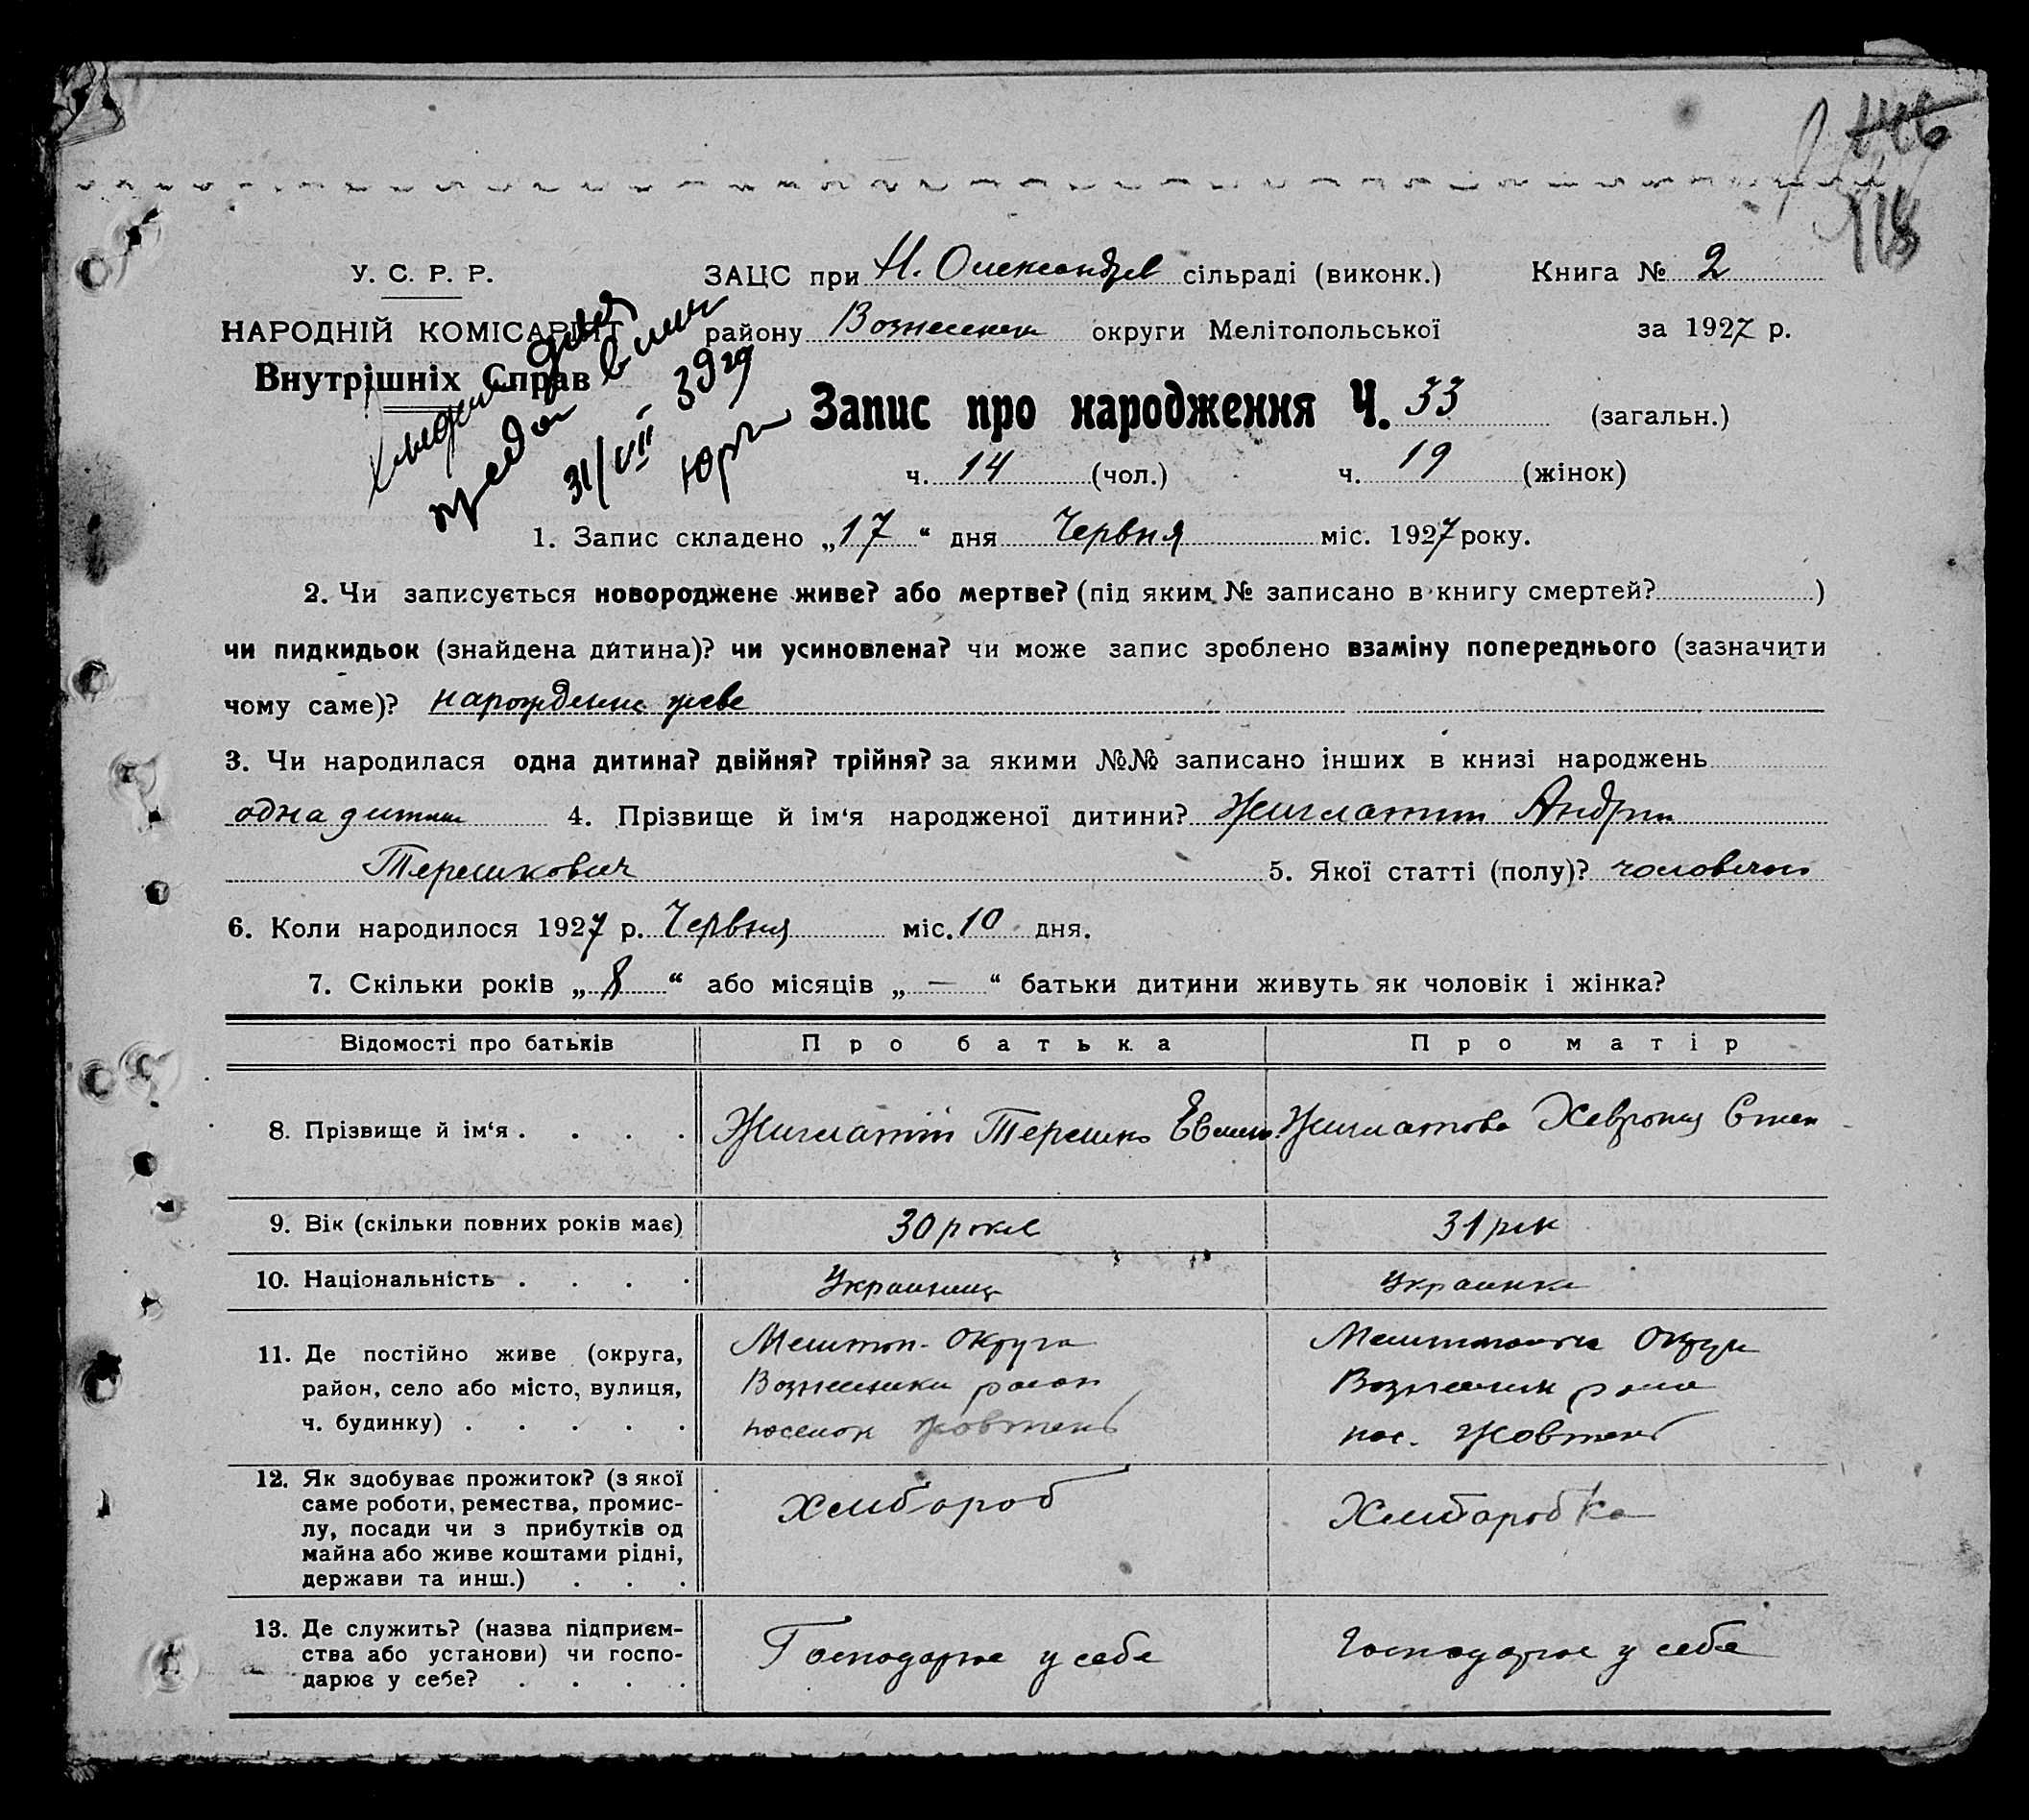 118
У. С. Р. Р. ЗАЦС при Н. Олександрів сільраді (виконк.) Книга № 2
НАРОДНІЙ КОМІСАРІЯТ району Вознесенськ округи Мелітопольської за 1927 р.
Внутрішніх Справ
31/VII 39 Запис про народження Ч. 33 (загальн.)
ч. 14 (чол.) ч. 19 (жінок)
1. Запис складено „17“ дня Червня міс. 1927 року.
2. Чи записується новороджене живе? або мертве? (під яким № записано в книгу смертей? )
чи пидкидьок (знайдена дитина)? чи усиновлена? чи може запис зроблено взаміну попереднього (зазначити
чому саме)? нарождение живе
3. Чи народилася одна дитина? двійня? трійня? за якими №№ записано інших в книзі народжень
одна дитина 4. Прізвище й ім‘я народженої дитини? Андрій
Терешкович 5. Якої статті (полу)? чоловічої
6. Коли народилося 1927 р. Червня міс. 10 дня.
7. Скільки років „8“ або місяців „—“ батьки дитини живуть як чоловік і жінка?
Відомості про батьків Про батька Про матір
8. Прізвище й ім‘я . . . . Терешко Хевронія Степ
9. Вік (скільки повних років має) 30 років 31 рік
10. Національність . . . . Украинец Украинка
11. Де постійно живе (округа, Мелитоп. округа
район, село або місто, вулиця, Вознесенськ район
ч. будинку) . . . . . поселок Жовтень пос. Жовтень
12. Як здобуває прожиток? (з якої
саме роботи, ремества, промис- Хлибороб Хлиборобка
лу, посади чи з прибутків од
майна або живе коштами рідні,
держави та инш.) . . .
13. Де служить? (назва підприєм-
ства або установи) чи госпо- Господарює у себе Господарює у себе
дарює у себе? . . . .